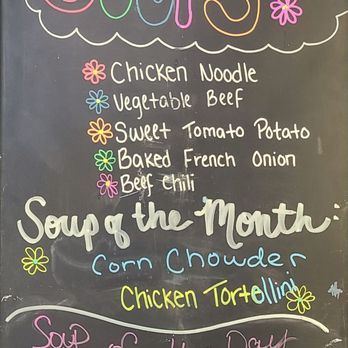 Soups
Chicken Noodle
Vegetable Beef
Sweet Tomato Potato
Baked French Onion
Beef Chili
Soup of the Month:
Corn Chowder
Chicken Tortellini
Soup of the Day